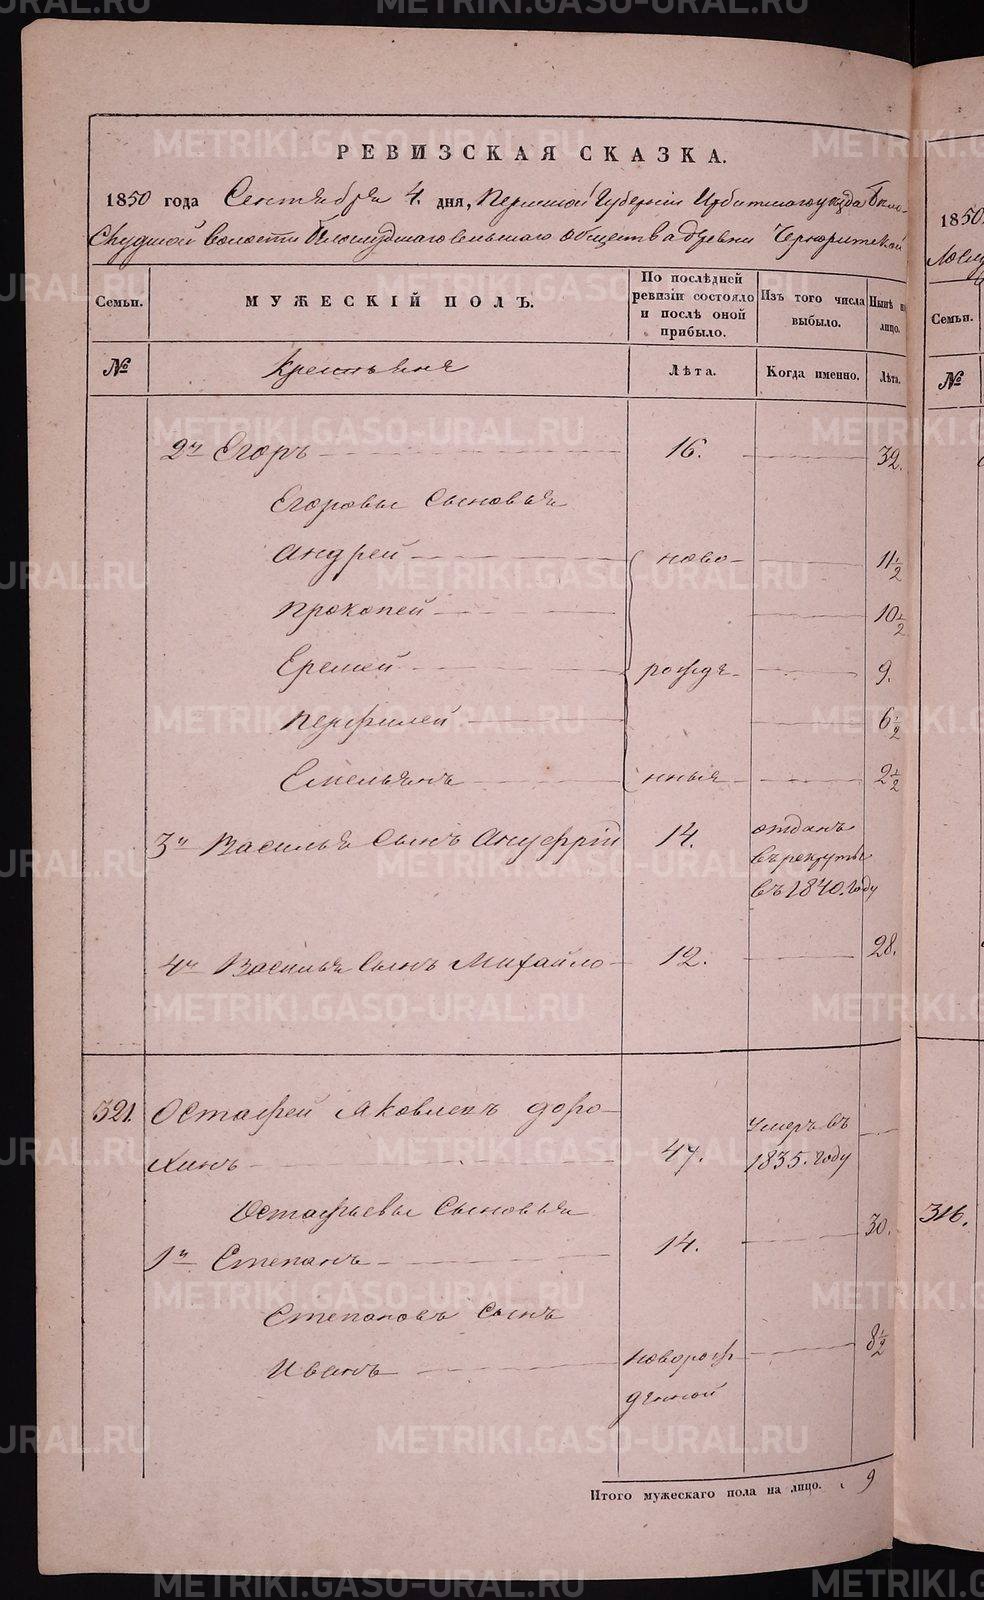 METRIKI.GASO-URAL.RU
РЕВИЗСКАЯ СКАЗКА.
1850 года Сентября 4. дня, Пермской Губернiи Ирбитскаго уѣзда Бело-
Слудской волости Белослудскаго сельскаго общества деревни
Семьи.
МУЖЕСКІЙ ПОЛЪ.
По послѣдней ревизіи состояло и послѣ оной прибыло.
Изъ того числа выбыло.
Нынѣ на лицо.
№
Крестьяне
Лѣта.
Когда именно.
Лѣта.
2й Егоръ 16. 32.
Егоровы Сыновья
Андрей ново- 11 1/2
Прокопей 10 1/2
Еремей рожде- 9.
Перфилей 6 1/2
Емельянъ нныя 2 1/2
3й Василья Сынъ Ануфрій 14. отданъ
въ рекруты
въ 1840. году
4й Василья Сынъ Михайло 12. 28.
321. Остафей Яковлевъ Доро-
хинъ 47. умеръ въ
1835. году
Остафьевы Сыновья
1й Степанъ 14. 30.
Степановъ Сынъ
Иванъ новорож- 8 1/2
денной
Итого мужескаго пола на лицо. 9
1850
Семьи.
№
316.